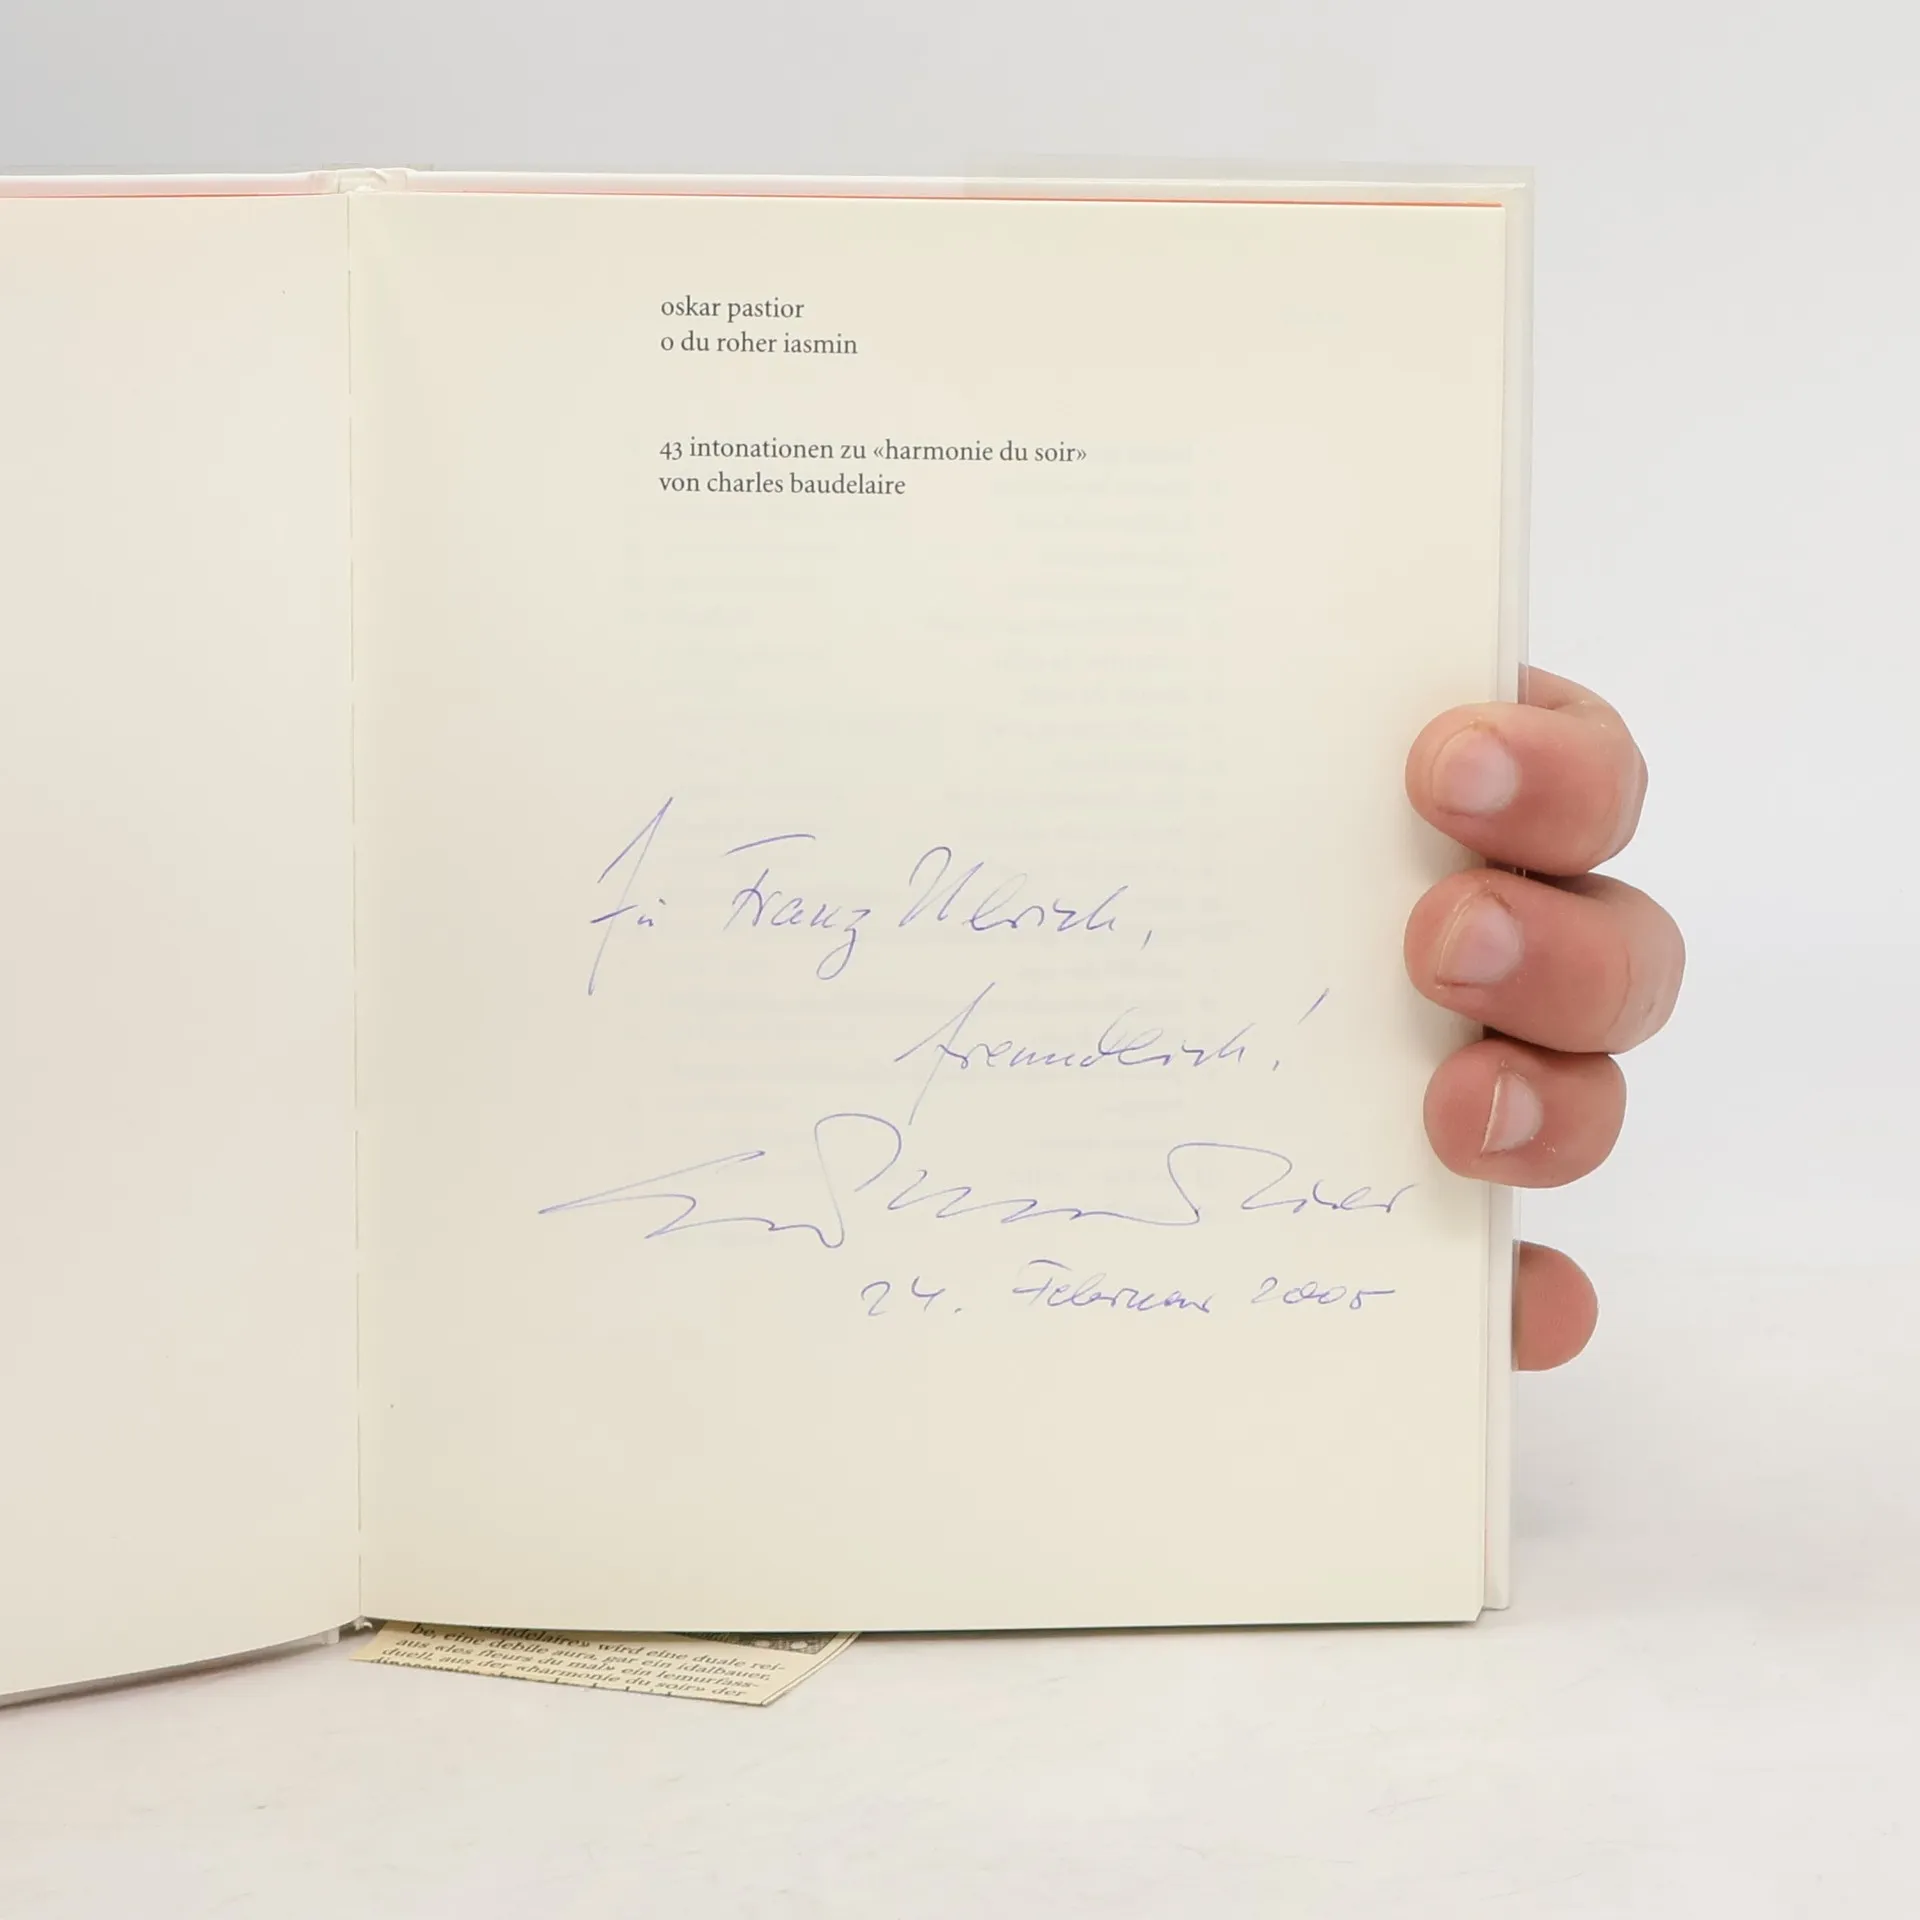 oskar pastior
o du roher iasmin
43 intonationen zu «harmonie du soir»
von charles baudelaire
Für Franz Ulrich,
freundlich!
Oskar Pastior
24. Februar 2005
baudelaire» wird eine duale rei-
be, eine debile aura, gar ein idalbauer,
aus «les fleurs du mal» ein lemurfass-
duell, aus der «harmonie du soir» der